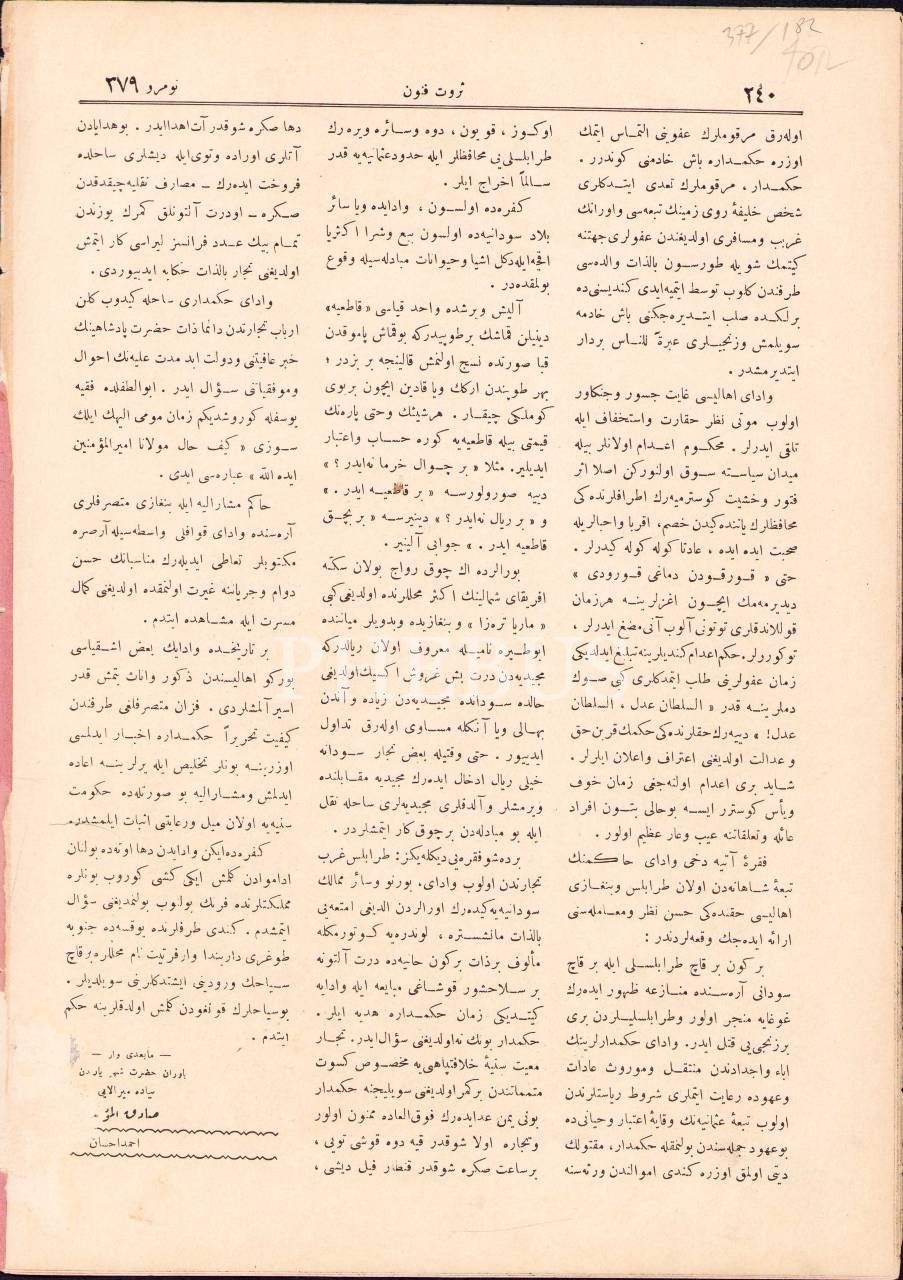 377/182
٢٤٠
ثروت فنون
نومرو ٣٧٩
اوله‌رق مرقوملرك عفوينى التماس ايتمك
اوزره حكمداره باش خادمنى كوندرر .
حكمدار ، مرقوملرك تعدى ايتدكلرى
شخص خليفهٔ روى زمينك تبعه‌سى واورانك
غريب ومسافرى اولديغندن عفولرى جهتنه
كيتمك شويله طورسون بالذات والده‌سى
طرفندن كلوب توسط ايتميه‌ايدى كنديسنى‌ده
برلكده صلب ايتديره‌جكنى باش خادمه
سويلمش وزنجيلرى عبرةً للناس بردار
ايتديرمشدر .
واداى اهاليسى غايت جسور وجنكاور
اولوب موتى نظر حقارت واستخفاف ايله
تلقى ايدرلر . محكوم اعدام اولانلر بيله
ميدان سياسته سوق اولنوركن اصلا اثر
فتور وخشيت كوسترميه‌رك اطرافلرنده‌كى
محافظلرك ياننده كيدن خصم، اقربا واحبالريله
صحبت ايده ايده ، عادتا كوله كوله كيدرلر .
حتى « قورقودن دماغى قورودى »
ديديرمه‌مك ايچون اغزلرينه هرزمان
قوللاندقلرى توتونى آلوب آنى مضغ ايدرلر ،
توكوررلر. حكم اعدام كنديلرينه تبليغ ايدلديكى
زمان عفولرينى طلب ايتمدكلرى كبى صوك
دملرينه قدر « السلطان عدل ، السلطان
عدل! » دييه‌رك حقلرنده‌كى حكمك قرين حق
وعدالت اولديغنى اعتراف واعلان ايلرلر .
شايد برى اعدام اولنه‌جغى زمان خوف
ويأس كوسترر ايسه بوحالى بتون افراد
عائله وتعلقاتنه عيب وعار عظيم اولور .
فقرهٔ آتيه دخى واداى حاكمنك
تبعهٔ شاهانه‌دن اولان طرابلس وبنغازى
اهاليسى حقنده‌كى حسن نظر ومعامله‌سنى
ارائه ايده‌جك وقعه‌لردندر :
بركون بر قاچ طرابلسلى ايله بر قاچ
سودانى آره‌سنده منازعه ظهور ايده‌رك
غوغايه منجر اولور وطرابلسليلردن برى
برزنجى‌يى قتل ايدر. واداى حكمدارلرينك
اباء واجدادندن منتقل وموروث عادات
وعهوده رعايت ايتملرى شروط رياستلرندن
اولوب تبعهٔ عثمانيه‌نك وقايهٔ اعتبار وحيانى‌ده
بوعهود جمله‌سندن بولنمقله حكمدار، مقتولك
ديتى اولمق اوزره كندى اموالندن ورثه‌سنه
اوكوز ، قويون ، دوه وسائره ويره‌رك
طرابلسلى‌يى محافظلر ايله حدود عثمانيه‌يه قدر
سالماً اخراج ايلر .
كفره‌ده اولسون ، وادايده ويا سائر
بلاد سودانيه‌ده اولسون بيع وشرا اكثريا
اقچه ايله‌دكل اشيا وحيوانات مبادله‌سيله وقوع
بولمقده‌در .
آليش ويرشده واحد قياسى « قاطعيه»
دينيلن قماشك برطوپيدركه بوقماش پاموقدن
قبا صورتده نسج اولنمش قالينجه بر بزدر ؛
بهر طوپندن اركك ويا قادين ايچون بربوى
كوملكى چيقار . هرشيئك وحتى پاره‌نك
قيمتى بيله قاطعيه‌يه كوره حساب واعتبار
ايديلير. مثلا « بر چوال خرما نه‌ايدر ؟ »
دييه صورولورسه « بر قاطعيه ايدر . »
و « بر ريال نه‌ايدر ؟ » دينيرسه « بربچق
قاطعيه ايدر . » جوابى آلينير .
بورالرده اك چوق رواج بولان سكه
افريقاى شمالينك اكثر محللرنده اولديغى كبى
« ماريا تره‌زا » وبنغازيده وبدويلر مياننده
ابوطيره ناميله معروف اولان ريالدركه
مجيديه‌دن درت بش غروش اكسيك اولديغى
حالده سودانده مجيديه‌دن زياده وآندن
بهالى ويا آنكله مساوى اوله‌رق تداول
ايدييور . حتى وقتيله بعض تجار سودانه
خيلى ريال ادخال ايده‌رك مجيديه مقابلنده
ويرمشلر وآلدقلرى مجيديه‌لرى ساحله نقل
ايله بو مبادله‌دن برچوق كار ايتمشلردر .
برده شو فقره‌يى ديكله‌يكز: طرابلس غرب
تجارندن اولوب واداى، بورنو وسائر ممالك
سودانيه‌يه كيده‌رك اورالردن الديغى امتعه‌يى
بالذات مانشستره ، لوندره‌يه كوتورمكله
مألوف برذات بركون حانيه‌ده درت آلتونه
بر سلاحشور قوشاغى مبايعه ايله وادايه
كيتديكى زمان حكمداره هديه ايلر .
حكمدار بونك نه‌اولديغنى سؤال ايدر. تجار
معيت سنيهٔ خلافتپناهى‌يه مخصوص كسوت
متمماتندن بركمر اولديغنى سويلينجه حكمدار
بونى يمن عدايده‌رك فوق‌العاده ممنون اولور
وتجاره اولا شوقدر قيه دوه قوشى تويى ،
برساعت صكره شوقدر قنطار فيل ديشى ،
دها صكره شوقدر آت اهدا ايدر . بوهدايادن
آتلرى اوراده وتوى ايله ديشلرى ساحلده
فروخت ايده‌رك ــ مصارف نقليه چيقدقدن
صكره ــ اودرت آلتونلق كمرك يوزندن
تمام بيك عدد فرانسز ليراسى كار ايتمش
اولديغنى تجار بالذات حكايه ايدييوردى .
واداى حكمدارى ساحله كيدوب كلن
ارباب تجارتدن دائما ذات حضرت پادشاهينك
خبر عافيتنى ودولت ابد مدت عليه‌نك احوال
وموفقياتنى سؤال ايدر . ابوالطفلده فقيه
يوسفله كوروشديكم زمان مومى اليهك ايلك
سوزى « كيف حال مولانا اميرالمؤمنين
ايده الله » عباره‌سى ايدى .
حاكم مشاراليه ايله بنغازى متصرفلرى
آره‌سنده واداى قوافلى واسطه‌سيله آره‌صره
مكتوبلر تعاطى ايديله‌رك مناسباتك حسن
دوام وجرياننه غيرت اولنمقده اولديغنى كمال
مسرت ايله مشاهده ايتدم .
بر تاريخده وادايك بعض اشقياسى
بوركو اهاليسندن ذكور واناث يتمش قدر
اسير آلمشلردى . فزان متصرفلغى طرفندن
كيفيت تحريراً حكمداره اخبار ايدلمسى
اوزرينه بونلر تخليص ايله يرلرينه اعاده
ايدلمش ومشاراليه بو صورتله‌ده حكومت
سنيه‌يه اولان ميل ورعايتى اثبات ايلمشدر.
كفره‌ده‌ايكن وادايدن دها اوته‌ده بولنان
اداموادن كلمش ايكى كشى كوروب بونلره
مملكتلرنده فرنك بولنوب بولنمديغنى سؤال
ايتمشدم . كندى طرفلرنده يوقسه‌ده جنوبه
طوغرى داربندا وارفرتيت نام محللره برقاچ
سياحك ورودينى ايشتدكلرينى سويلديلر .
بوسياحلرك قونغودن كلمش اولدقلرينه حكم
ايتدم .
ــ مابعدى وار ــ
ياوران حضرت شهرياريدن
پياده ميرالايى
صادق المؤ
احمد احسان